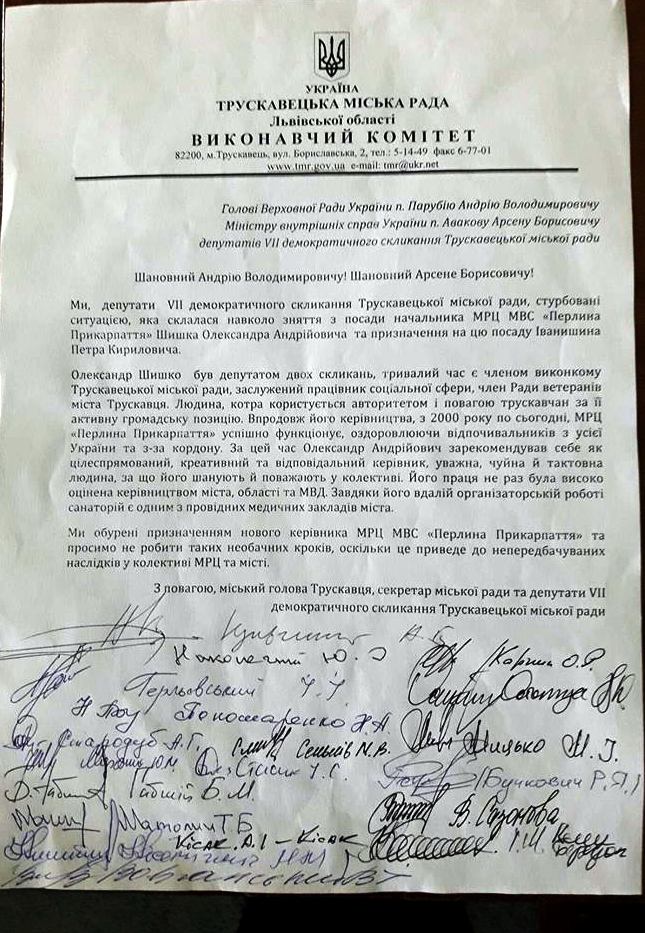 УКРАЇНА
ТРУСКАВЕЦЬКА МІСЬКА РАДА
Львівської області
ВИКОНАВЧИЙ КОМІТЕТ
82200, м.Трускавець, вул. Бориславська, 2, тел.: 5-14-49 факс 6-77-01
www.tmr.gov.ua e-mail: tmr@ukr.net
Голові Верховної Ради України п. Парубію Андрію Володимировичу
Міністру внутрішніх справ України п. Авакову Арсену Борисовичу
депутатів VII демократичного скликання Трускавецької міської ради
Шановний Андрію Володимировичу! Шановний Арсене Борисовичу!
Ми, депутати VII демократичного скликання Трускавецької міської ради, стурбовані
ситуацією, яка склалася навколо зняття з посади начальника МРЦ МВС «Перлина
Прикарпаття» Шишка Олександра Андрійовича та призначення на цю посаду Іванишина
Петра Кириловича.
Олександр Шишко був депутатом двох скликань, тривалий час є членом виконкому
Трускавецької міської ради, заслужений працівник соціальної сфери, член Ради ветеранів
міста Трускавця. Людина, котра користується авторитетом і повагою трускавчан за її
активну громадську позицію. Впродовж його керівництва, з 2000 року по сьогодні, МРЦ
«Перлина Прикарпаття» успішно функціонує, оздоровлюючи відпочивальників з усієї
України та з-за кордону. За цей час Олександр Андрійович зарекомендував себе як
цілеспрямований, креативний та відповідальний керівник, уважна, чуйна й тактовна
людина, за що його шанують й поважають у колективі. Його праця не раз була високо
оцінена керівництвом міста, області та МВД. Завдяки його вдалій організаторській роботі
санаторій є одним з провідних медичних закладів міста.
Ми обурені призначенням нового керівника МРЦ МВС «Перлина Прикарпаття» та
просимо не робити таких необачних кроків, оскільки це приведе до непередбачуваних
наслідків у колективі МРЦ та місті.
З повагою, міський голова Трускавця, секретар міської ради та депутати VII
демократичного скликання Трускавецької міської ради
Ю.
Карпин О.Р.
Герльовський
Пономаренко Н.А.
Стародуб А.Г. Сеньків М.В. Мицько М.І.
Стасик
(Бучкович Р.Я.)
Габшій Б.М.
В. Сазонова
Т.Б.
Кісак А.І - Кісак